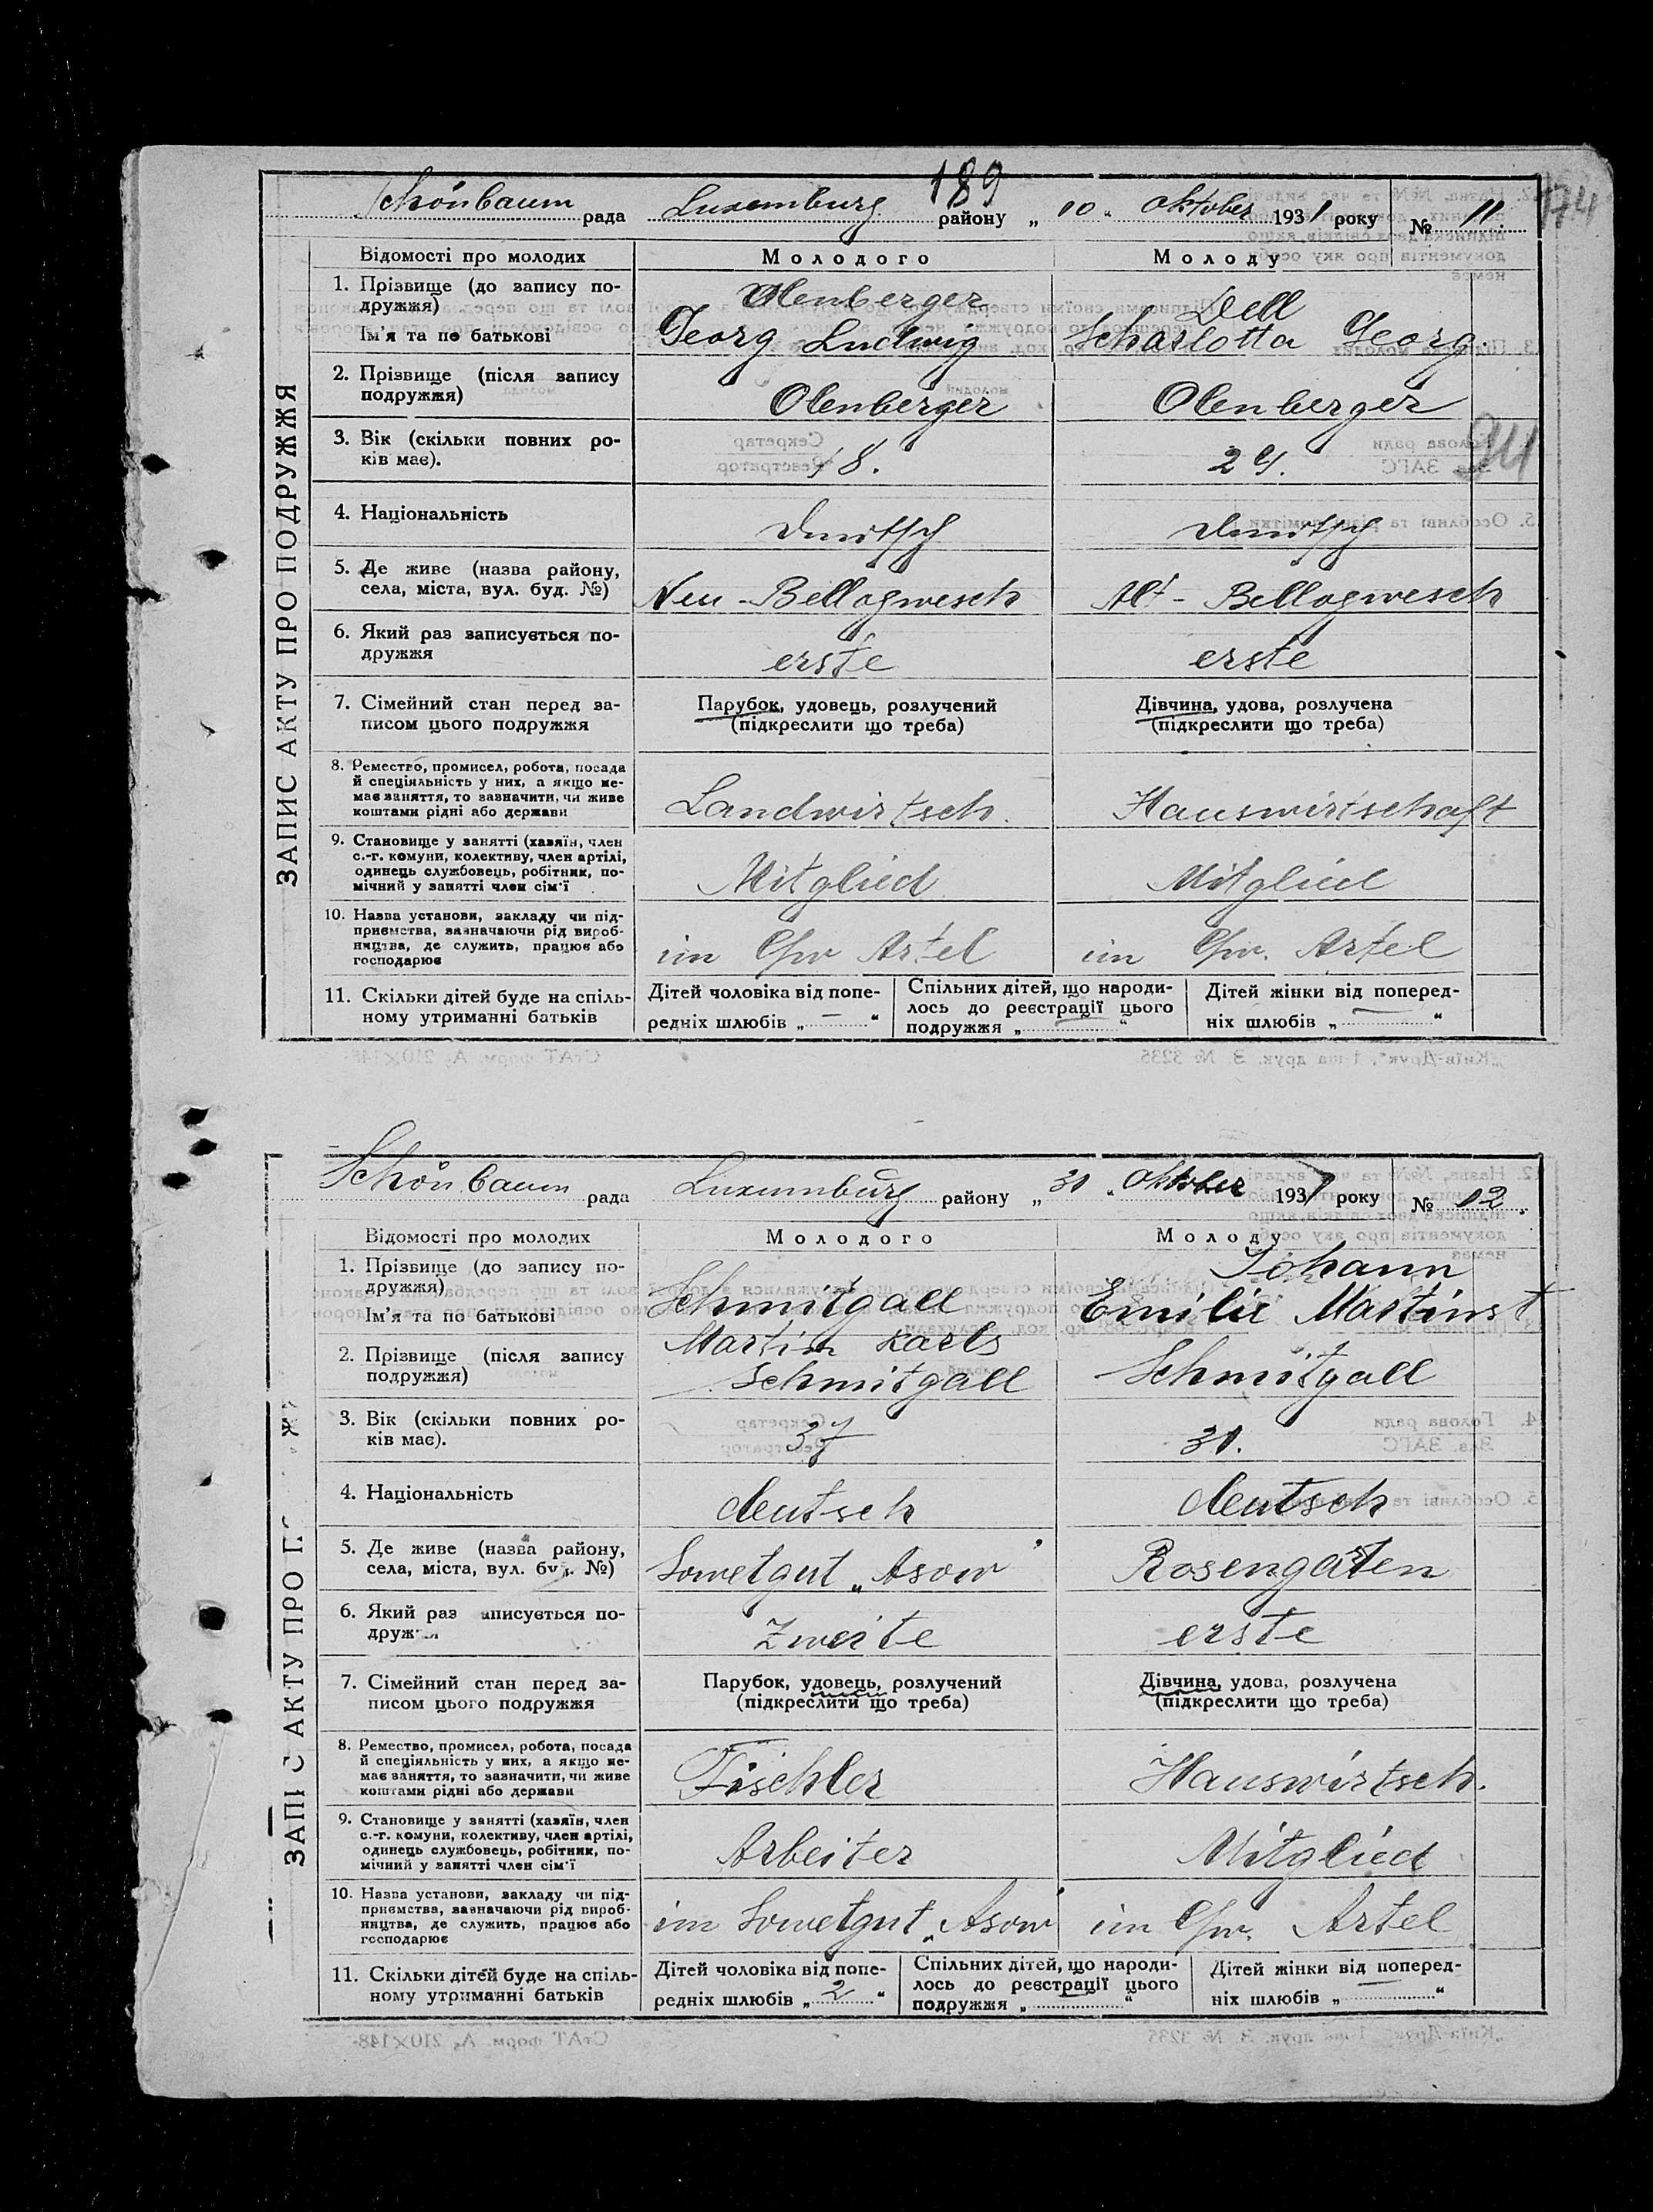 189
174
Schönbaum рада Luxemburg району „ 10 “ Oktober 1931 року № 11.
ЗАПИС АКТУ ПРО ПОДРУЖЖЯ
Відомості про молодих Молодого Молоду
1. Прізвище (до запису по-
дружжя)
Olenberger Dell
Ім'я та по батькові Georg Ludwig Scharlotta Georg.
2. Прізвище (після запису
подружжя) Olenberger Olenberger
3. Вік (скільки повних ро-
ків має). 18. 24.
4. Національність Deutsch Deutsch
5. Де живе (назва району,
села, міста, вул. буд. №) Neu-Bellagwesch Alt-Bellagwesch
6. Який раз записується по-
дружжя erste erste
7. Сімейний стан перед за-
писом цього подружжя
Парубок, удовець, розлучений
(підкреслити що треба)
Дівчина, удова, розлучена
(підкреслити що треба)
8. Ремество, промисел, робота, посада
й спеціяльність у них, а якщо не-
має заняття, то зазначити, чи живе
коштами рідні або держави
Landwirtsch. Hauswirtschaft
9. Становище у занятті (хазяїн, член
с.-г. комуни, колективу, член артілі,
одинець службовець, робітник, по-
мічний у занятті член сім'ї
Mitglied Mitglied
10. Назва установи, закладу чи під-
приємства, зазначаючи рід вироб-
ництва, де служить, працює або
господарює
im Artel im Artel
11. Скільки дітей буде на спіль-
ному утриманні батьків
Дітей чоловіка від попе-
редніх шлюбів „ — “
Спільних дітей, що народи-
лось до реєстрації цього
подружжя „ — “
Дітей жінки від поперед-
ніх шлюбів „ — “
Schönbaum рада Luxemburg району „ 31 “ Oktober 1931 року № 12.
Відомості про молодих Молодого Молоду
1. Прізвище (до запису по-
дружжя)
Ім'я та по батькові
Schmitgall
Martin Karls
Johann
Emilie Martinst
2. Прізвище (після запису
подружжя) Schmitgall Schmitgall
3. Вік (скільки повних ро-
ків має). 37 31.
4. Національність deutsch deutsch
5. Де живе (назва району,
села, міста, вул. буд. №) Sowetgut „Asow“ Rosengarten
6. Який раз записується по-
дружжя Zweite erste
7. Сімейний стан перед за-
писом цього подружжя
Парубок, удовець, розлучений
(підкреслити що треба)
Дівчина, удова, розлучена
(підкреслити що треба)
8. Ремество, промисел, робота, посада
й спеціяльність у них, а якщо не-
має заняття, то зазначити, чи живе
коштами рідні або держави
Tischler Hauswirtsch.
9. Становище у занятті (хазяїн, член
с.-г. комуни, колективу, член артілі,
одинець службовець, робітник, по-
мічний у занятті член сім'ї
Arbeiter Mitglied
10. Назва установи, закладу чи під-
приємства, зазначаючи рід вироб-
ництва, де служить, працює або
господарює
im Sowetgut „Asow“ im Artel
11. Скільки дітей буде на спіль-
ному утриманні батьків
Дітей чоловіка від попе-
редніх шлюбів „ 2 “
Спільних дітей, що народи-
лось до реєстрації цього
подружжя „ — “
Дітей жінки від поперед-
ніх шлюбів „ — “